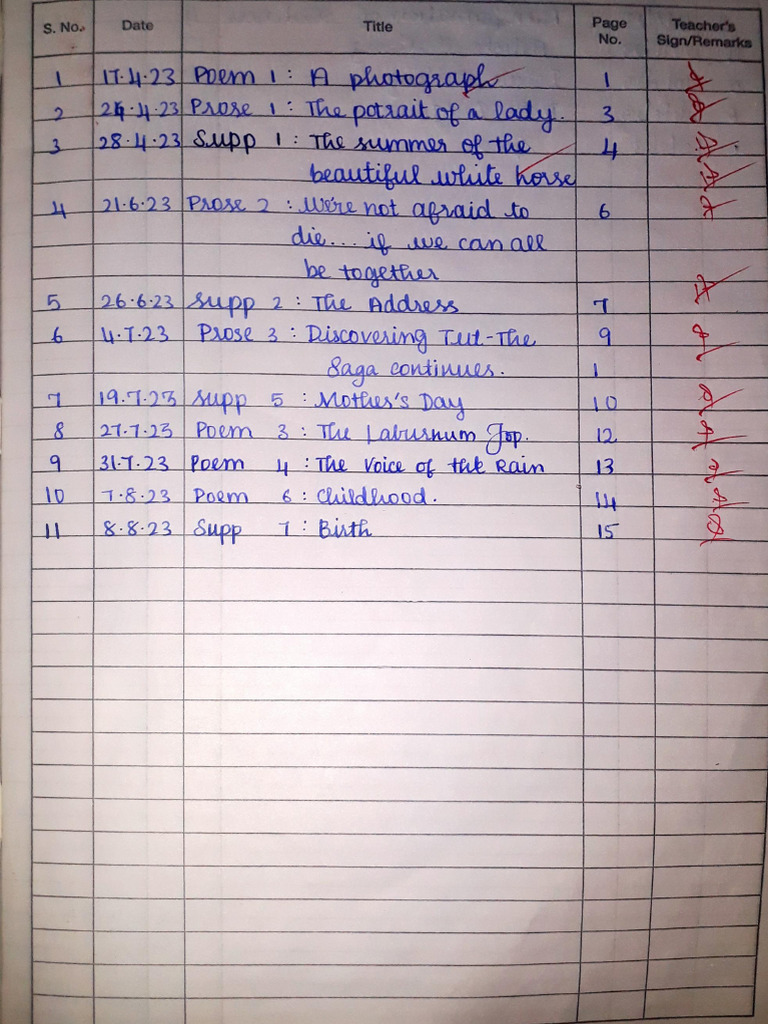 S. No. Date Title Page No. Teacher's Sign/Remarks
1 17.4.23 Poem 1 : A photograph 1
2 24.4.23 Prose 1 : The potrait of a lady. 3
3 28.4.23 Supp 1 : The summer of the 4
beautiful white horse
4 21.6.23 Prose 2 : We're not afraid to 6
die... if we can all
be together
5 26.6.23 Supp 2 : The Address 7
6 4.7.23 Prose 3 : Discovering Tut-The 9
Saga continues.
7 19.7.23 Supp 5 : Mother's Day 10
8 27.7.23 Poem 3 : The Laburnum Top. 12
9 31.7.23 Poem 4 : The Voice of the Rain 13
10 7.8.23 Poem 6 : Childhood. 14
11 8.8.23 Supp 7 : Birth 15